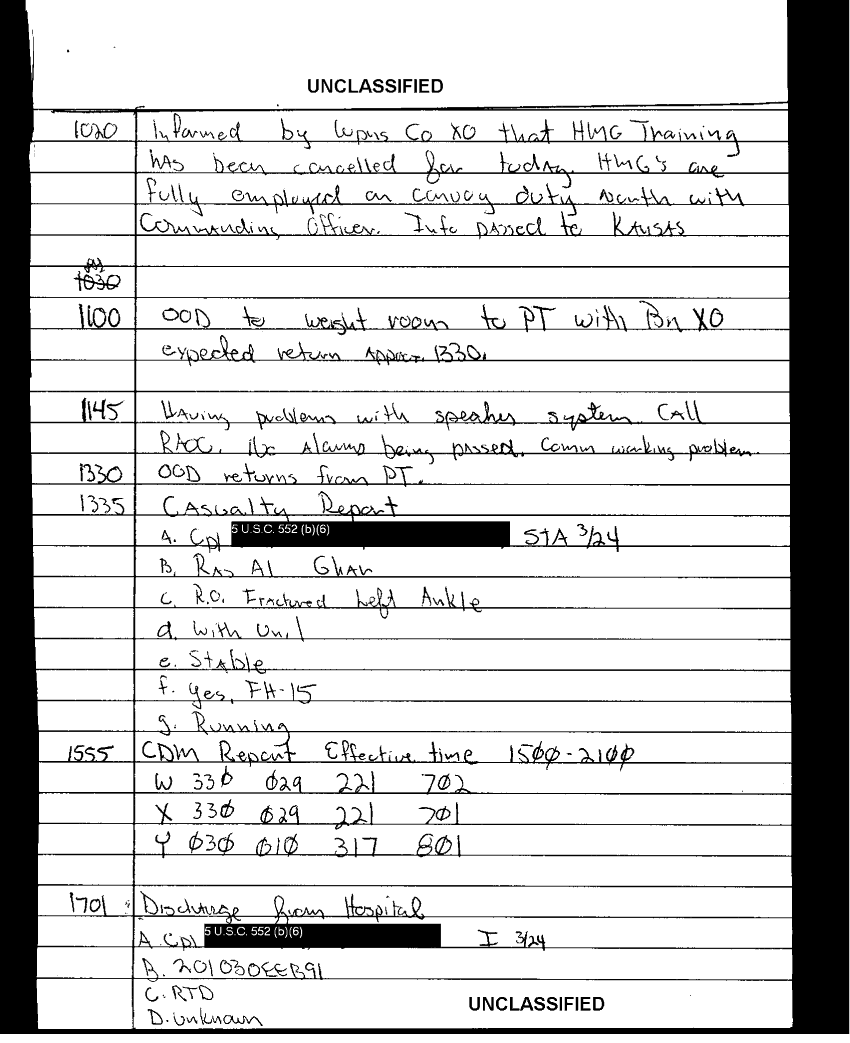 UNCLASSIFIED
1020 Informed by Wpns Co XO that HMG Training
has been cancelled for today. HMG's are
fully employed on convoy duty north with
Commanding Officer. Info passed to KANSAS
1030
1100 OOD to weight room to PT with Bn XO
expected return Approx. 1330.
1145 Having problems with speaker system CAll
RAOC. No Alarms being passed. Comm working problem.
1330 OOD returns from PT.
1335 Casualty Report
A. Cpl 5 U.S.C. 552 (b)(6) STA 3/24
B. Ras Al Ghar
C. R.O. Fractured Left Ankle
d. With Unit
e. Stable
f. yes, FH-15
g. Running
1555 CDM Report Effective time 15ØØ-21ØØ
W 33Ø Ø29 221 7Ø2
X 33Ø Ø29 221 7Ø1
Y Ø3Ø Ø1Ø 317 8Ø1
1701 Discharge from Hospital
A Cpl 5 U.S.C. 552 (b)(6) I 3/24
B. 201030EEB91
C. RTD
D. Unknown
UNCLASSIFIED